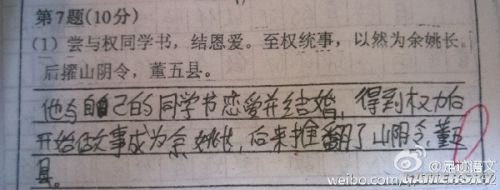 第7题(10分)
(1)尝与权同学书，结恩爱。至权统事，以然为余姚长。
后擢山阴令，董五县。
他与自己的同学书恋爱并结婚，得到权力后
开始做事成为余姚长，后来推翻了山阴令董五
县。
@逗试语文
weibo.com/u/